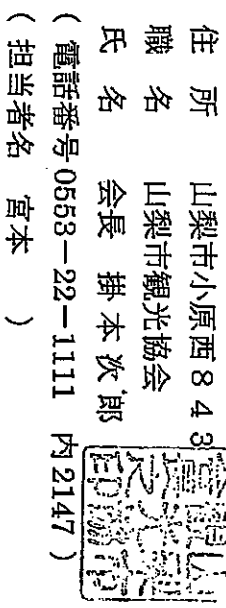 住所 山梨市小原西843
職名 山梨市観光協会
氏名 会長 掛本次郎
(電話番号0553-22-1111 内2147)
(担当者名 宮本 )